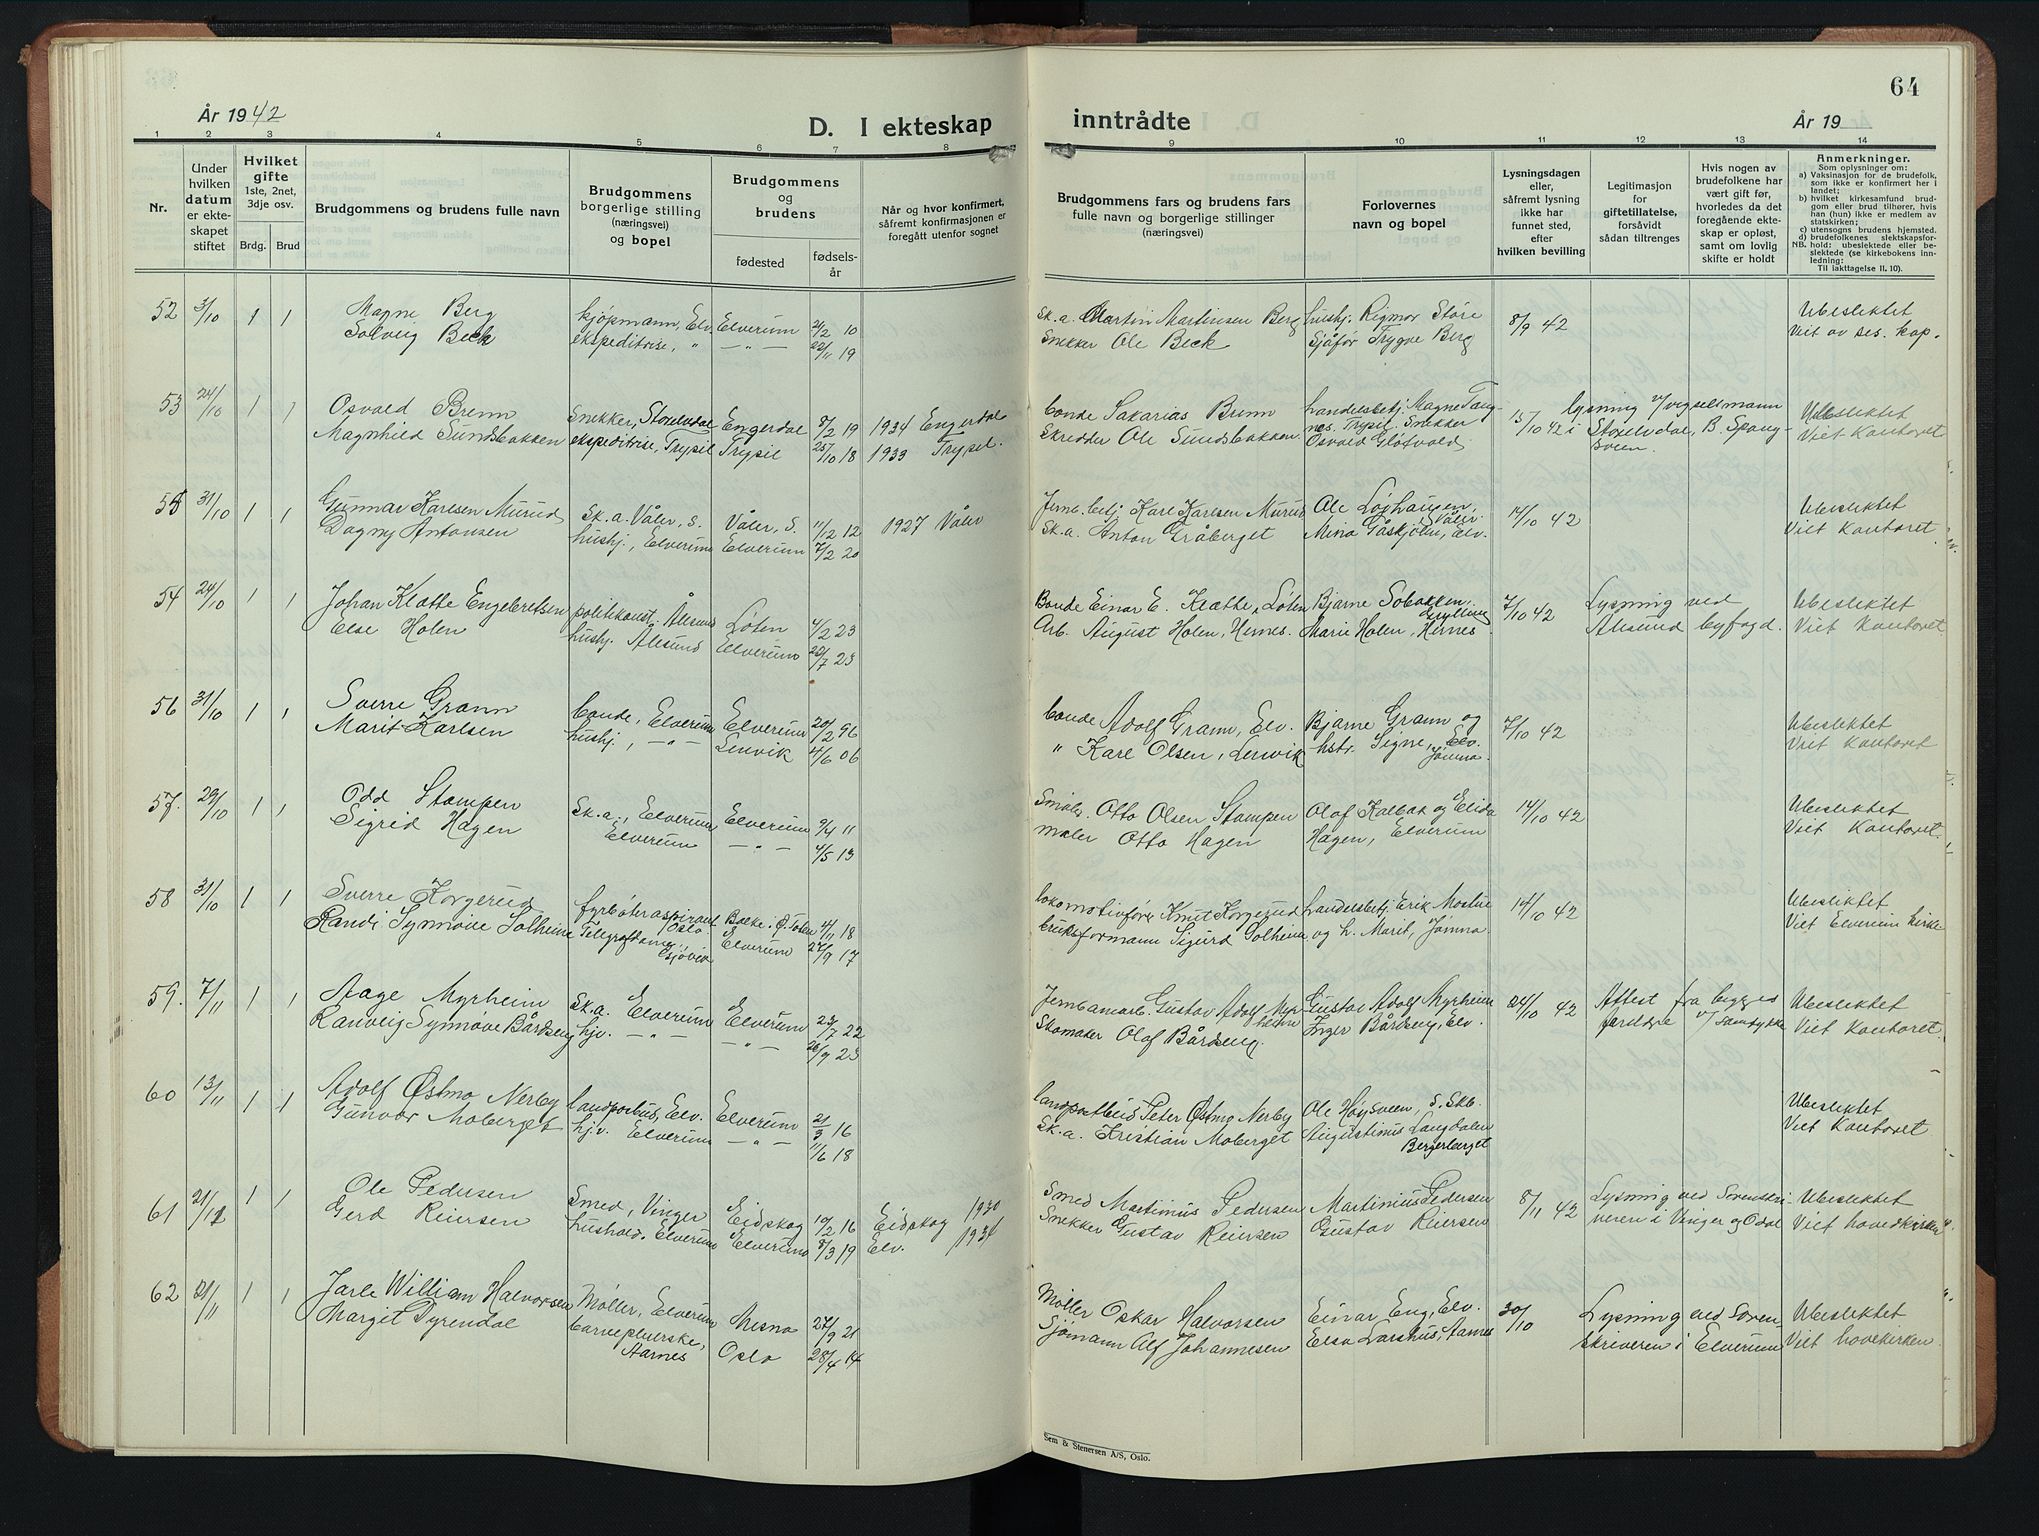 64
År 1942
D. I ekteskap
inntrådte
År 19
1 2 3 4 5 6 7 8
9 10 11 12 13 14
Nr.
Under hvilken datum er ekteskapet stiftet
Hvilket gifte
1ste, 2net, 3dje osv.
Brdg. Brud
Brudgommens og brudens fulle navn
Brudgommens borgerlige stilling (næringsvei) og bopel
Brudgommens og brudens
fødested
fødselsår
Når og hvor konfirmert, såfremt konfirmasjonen er foregått utenfor sognet
Brudgommens fars og brudens fars fulle navn og borgerlige stillinger (næringsvei)
Forlovernes navn og bopel
Lysningsdagen eller, såfremt lysning ikke har funnet sted, efter hvilken bevilling
Legitimasjon for giftetillatelse, forsåvidt sådan tiltrenges
Hvis nogen av brudefolkene har vært gift før, hvorledes da det foregående ekteskap er opløst, samt om lovlig skifte er holdt
Anmerkninger.
Som oplysninger om:
a) Vaksinasjon for de brudefolk, som ikke er konfirmert her i landet;
b) hvilket kirkesamfund brudgom eller brud tilhører, hvis han (hun) ikke er medlem av statskirken;
c) utensogns brudens hjemsted.
d) brudefolkenes slektskapsforhold: ubeslektede eller beslektede (se kirkebokens innledning:
NB.
Til iakttagelse II. 10).
52 3/10 1 1 Magne Berg kjøpmann, Elv. Elverum 2/2 10 Sk.a. Martin Martinsen Berg hushj. Rigmor Støre 8/9 42 Ubeslektet
Solveig Beck ekspeditrise, " — " — 22/11 19 Snekker Ole Beck Sjåfør Trygve Berg Viet av res. kap.
53 24/10 1 1 Osvald Brenn Snekker, Storelvdal Engerdal 8/2 19 1934 Engerdal bonde Sakarias Brenn handelsbetj. Magne Tangnes, Trysil. Snekker 15/10 42 lysning v/ vigselsmann i Storelvdal, B. Spangsveen. Ubeslektet
Magnhild Sundsbakken ekspeditrise, Trysil Trysil 25/10 18 1933 Trysil. Skredder Ole Sundsbakken. Osvald Gløtvold Viet Kontoret
55 31/10 1 1 Gunnar Karlsen Murud Sk.a. Våler, S. Våler, S. 11/12 12 1927 Våler Jernb. betj. Karl Karlsen Murud Ole Løghaugen, Våler. 14/10 42 Ubeslektet
Dagny Antonsen hushj., Elverum Elverum 7/2 20 Sk.a. Anton Gråberget Mina Påskjølen, Elv. Viet Kontoret.
54 24/10 1 1 Johan Klatte Engebretsen politikonst. Ålesund Løten 4/2 23 Bonde Einar E. Klatte, Løten Bjarne Sobakken, 7/10 42 Lysning ved Ubeslektet
Else Holen hushj. Ålesund Elverum 20/7 23 Arb. August Holen, Hernes. Marie Holen, Hernes. Ålesund byfogd. Viet Kontoret.
56 31/10 1 1 Sverre Grann bonde, Elverum Elverum 20/2 96 bonde Adolf Grann, Elv. Bjarne Grann og 7/10 42 Ubeslektet
Marit Karlsen hushj., — " — Lenvik 4/6 06 " Karl Olsen, Lenvik hstr. Signe, Elv. Jømna. Viet Kontoret
57. 29/10 1 1 Odd Stampen Sk.a., Elverum Elverum 9/4 11 Otto Olsen Stampen Olaf Kalbak og Elida 14/10 42 Ubeslektet
Sigrid Hagen Elverum — " — 4/5 13 maler Otto Hagen Hagen, Elverum Viet Kontoret.
58 31/10 1 1 Sverre Korgerud fyrbøteraspirant Oslo Balke, Ø. Toten 4/11 18 lokomotivfører Knut Korgerud handelsbetj. Erik Mostue 14/10 42 Ubeslektet
Randi Synnøve Solheim Telegrafdame, Gjøvik Elverum 27/9 17 bruksformann Sigurd Solheim og h. Marit, Jømna. Viet Elverum kirke
59. 7/11 1 1 Aage Myrheim Sk.a. Elverum Elverum 23/7 22 Jernbanearb. Gustav Adolf Myrheim Gustav Adolf Myrheim 24/10 42 Attest fra begges Ubeslektet
Ranveig Synnøve Bårdseng hjv. — " — — " — 26/9 23 Skomaker Olaf Bårdseng. Inger Bårdseng, Elv. foreldre v/ samtykke Viet Kontoret.
60 13/11 1 1 Adolf Østmo Nerby landpostbud, Elv. Elverum 21/3 16 landpostbud Peter Østmo Nerby Ole Høysveen, S. Skb. Ubeslektet
Gunvor Moberget hjv. Elverum — " — 11/6 18 Sk.a. Kristian Moberget Augustinus Langdalen Bergeberget Viet Kontoret.
61 21/11 1 1 Ole Pedersen Smed, Vinger Eidskog 19/2 16 Eidskog 1930 Smed Martinius Pedersen Martinius Pedersen 8/11 42 Lysning ved Sorenskriveren i Vinger og Odal Ubeslektet
Gerd Reiersen hushold. Elverum Elverum 8/3 19 Elv. 1934 Snekker Gustav Reiersen Gustav Reiersen Viet hovedkirken
62 21/11 1 1 Jarle William Halvorsen Møller, Elverum Mesna 27/9 21 Møller Oskar Halvorsen Einar Eng, Elv. 30/10 Lysning ved Soren- Ubeslektet
Margit Tyrendal barnepleierske, Aarnes Oslo 28/4 14 Sjømann Alf Johannesen Elsa Larshus, Aarnes skriveren i Elverum Viet hovekirken
Sem & Stenersen A/S, Oslo.